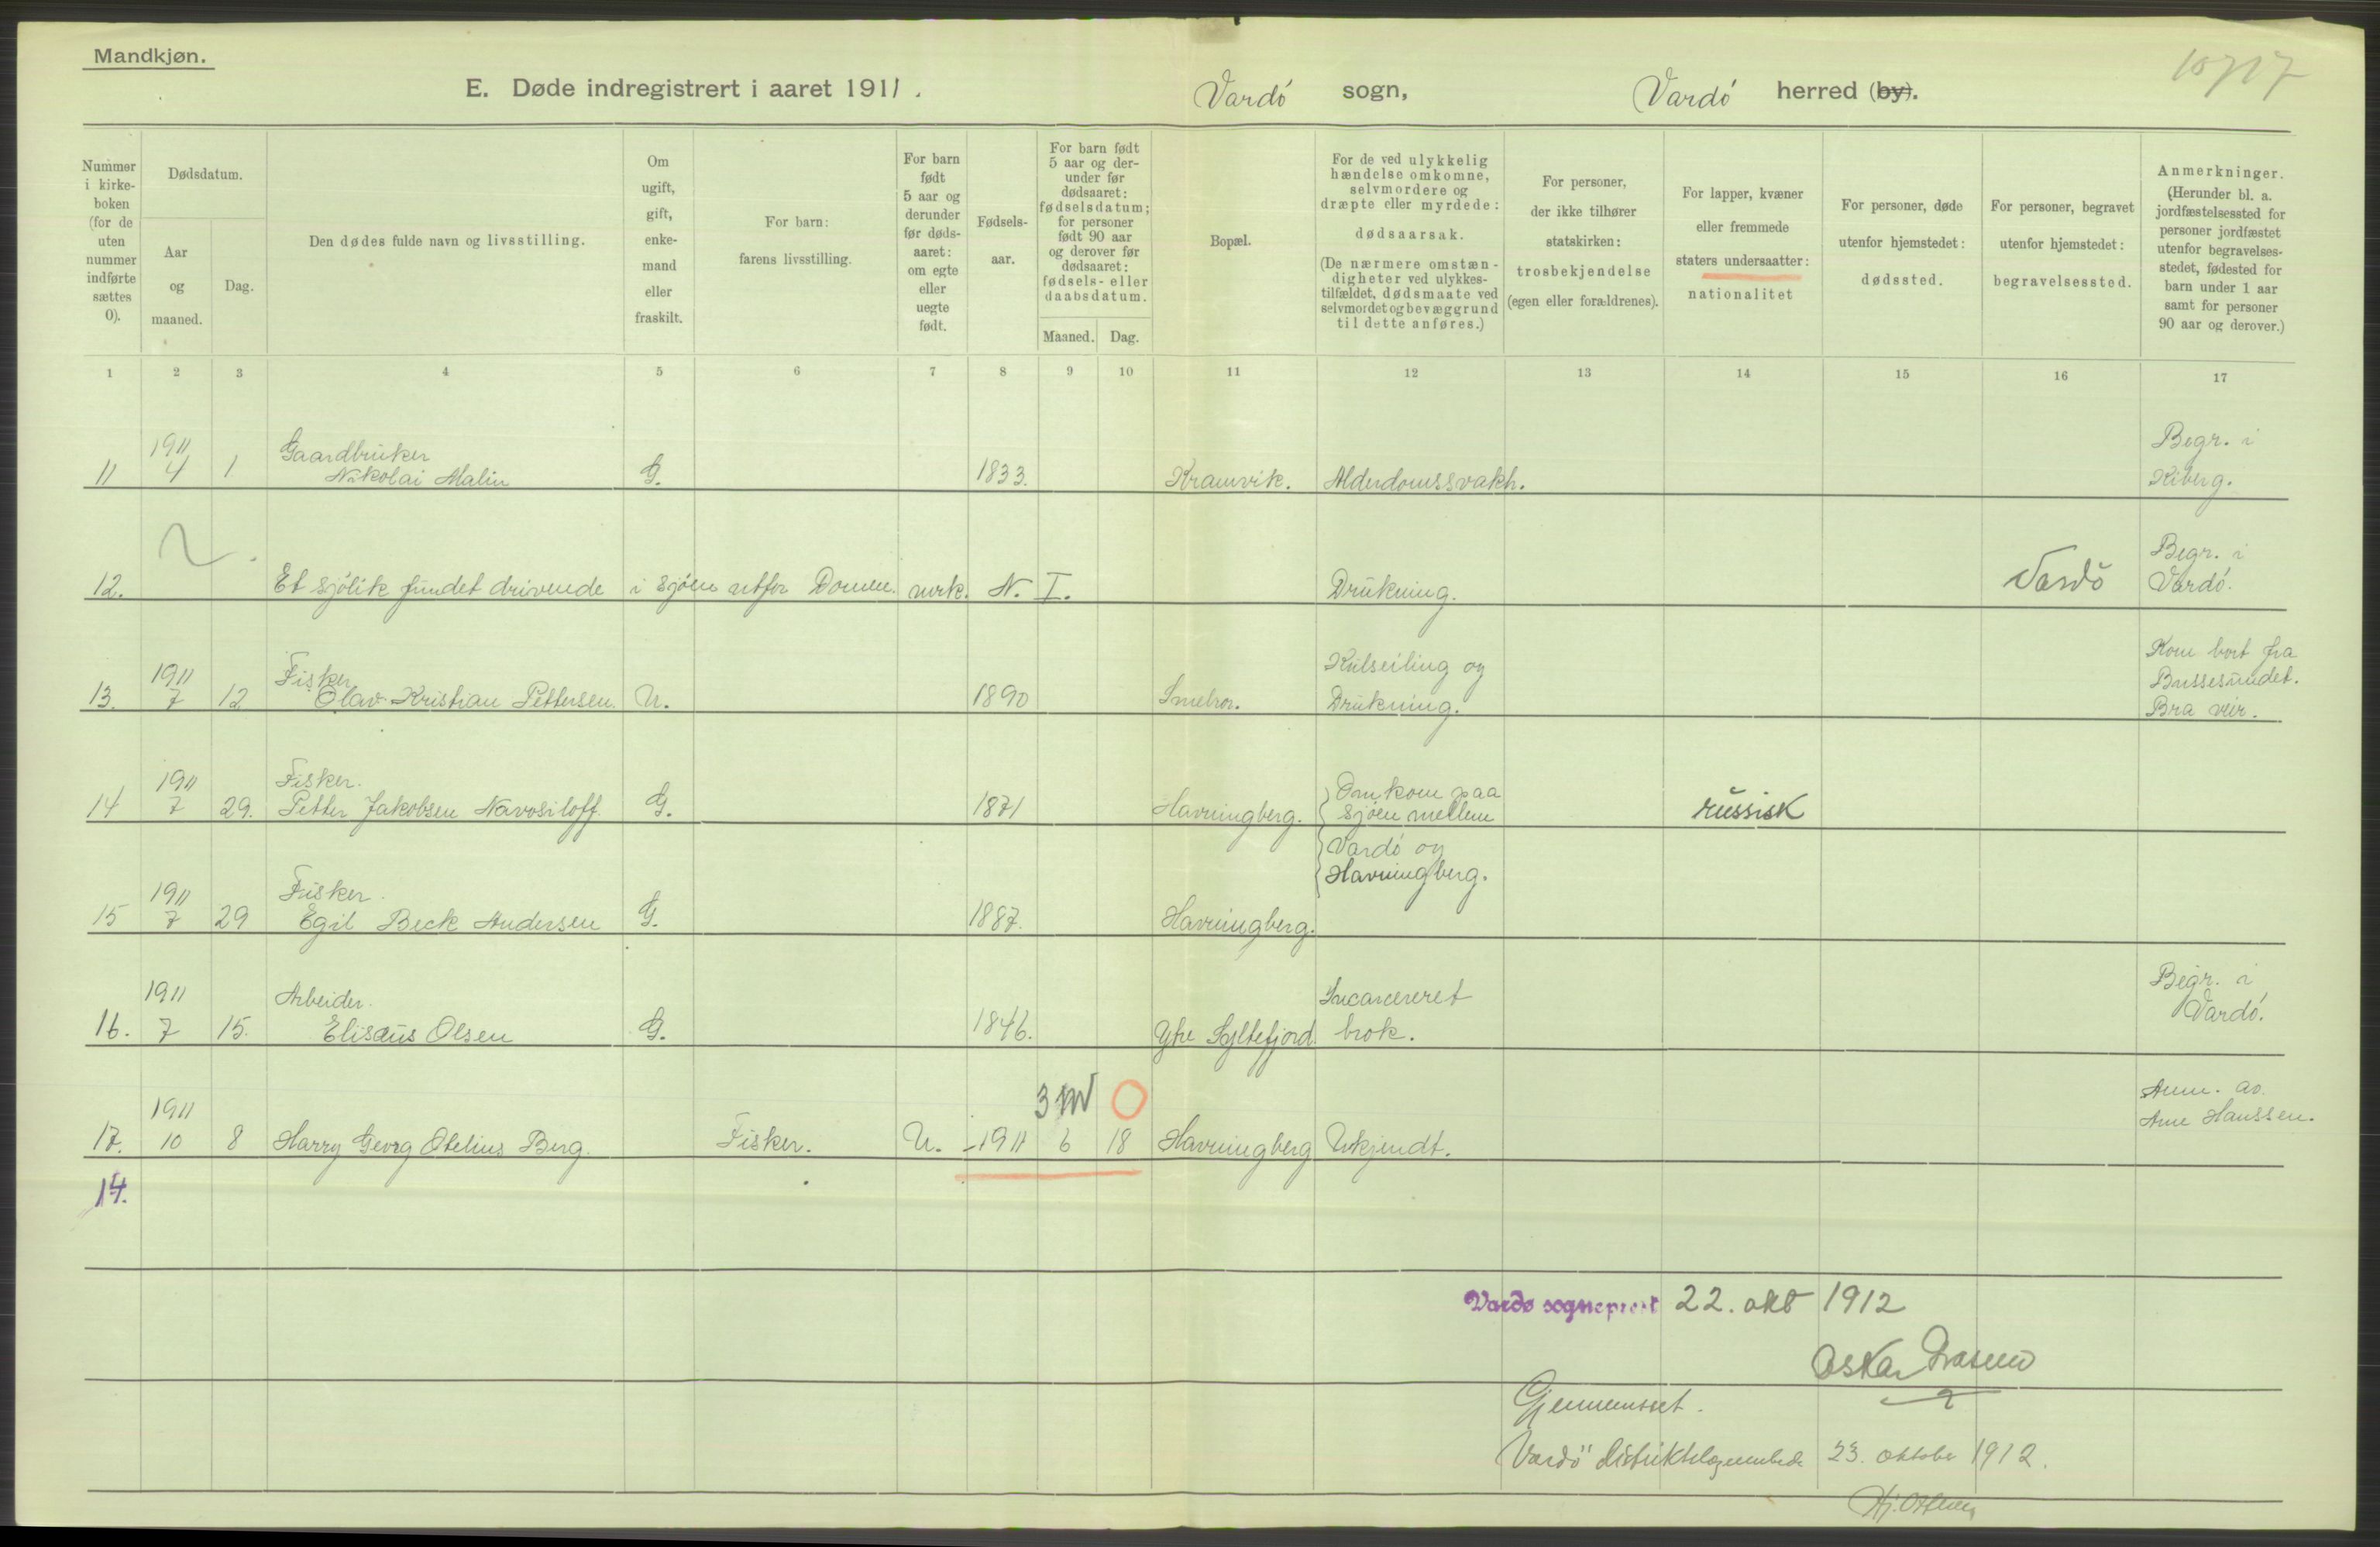 Mandkjøn.
E. Døde indregistrert i aaret 1911. Vardö sogn, Vardö herred (by).
Nummer i kirke-boken (for de uten nummer indførte sættes 0).
Dødsdatum.
Aar og maaned.
Dag.
Den dødes fulde navn og livsstilling.
Om ugift, gift, enke-mand eller fraskilt.
For barn: farens livsstilling.
For barn født 5 aar og derunder før døds-aaret: om egte eller uegte født.
Fødsels-aar.
For barn født 5 aar og der-under før dødsaaret: fødselsdatum; for personer født 90 aar og derover før dødsaaret: fødsels- eller daabsdatum.
Maaned. Dag.
Bopæl.
For de ved ulykkelig hændelse omkomne, selvmordere og dræpte eller myrdede: dødsaarsak.
(De nærmere omstæn-digheter ved ulykkes-tilfældet, dødsmaate ved selvmordet og bevæggrund til dette anføres.)
For personer, der ikke tilhører statskirken: trosbekjendelse (egen eller forældrenes).
For lapper, kvæner eller fremmede staters undersaatter: nationalitet
For personer, døde utenfor hjemstedet: dødssted.
For personer, begravet utenfor hjemstedet: begravelsessted.
Anmerkninger.
(Herunder bl. a. jordfæstelsessted for personer jordfæstet utenfor begravelses-stedet, fødested for barn under 1 aar samt for personer 90 aar og derover.)
1 2 3 4 5 6 7 8 9 10 11 12 13 14 15 16 17
11 1911 4 1 Gaardbruker Nikolai Malin G. 1833. Kramvik. Alderdomssvakh. Begr. i Kiberg.
12. Et sjölik fundet drivende i sjöen utfor Domen. mrk. N. I. Drukning. Vardö Begr. i Vardö.
13. 1911 7 12 Fisker Olav Kristian Pettersen. U. 1890 Smelror. Kulseiling og Drukning. Kom bort fra Bussesundet. Bra veir.
14 1911 7 29. Fisker. Petter Jakobsen Navosiloff G. 1871 Havningberg. Omkom paa sjöen mellem russisk
Vardö og
Havningberg.
15 1911 7 29 Fisker. Egil Beck Andersen G. 1887. Havningberg.
16. 1911 7 15. Arbeider. Elisæus Olsen G. 1846. Ytre Syltefjord. Incarcereret brok. Begr. i Vardö.
3 m 0
17. 1911 10 8 Harry Georg Otelius Berg. Fisker. U. 1911 6 18 Havningberg Ukjendt. Anm. av Arne Hanssen.
14.
Vardø sogneprest 22. okt 1912
Oskar
Gjennemset.
Vardö distriktslægeembede 23. oktober 1912.